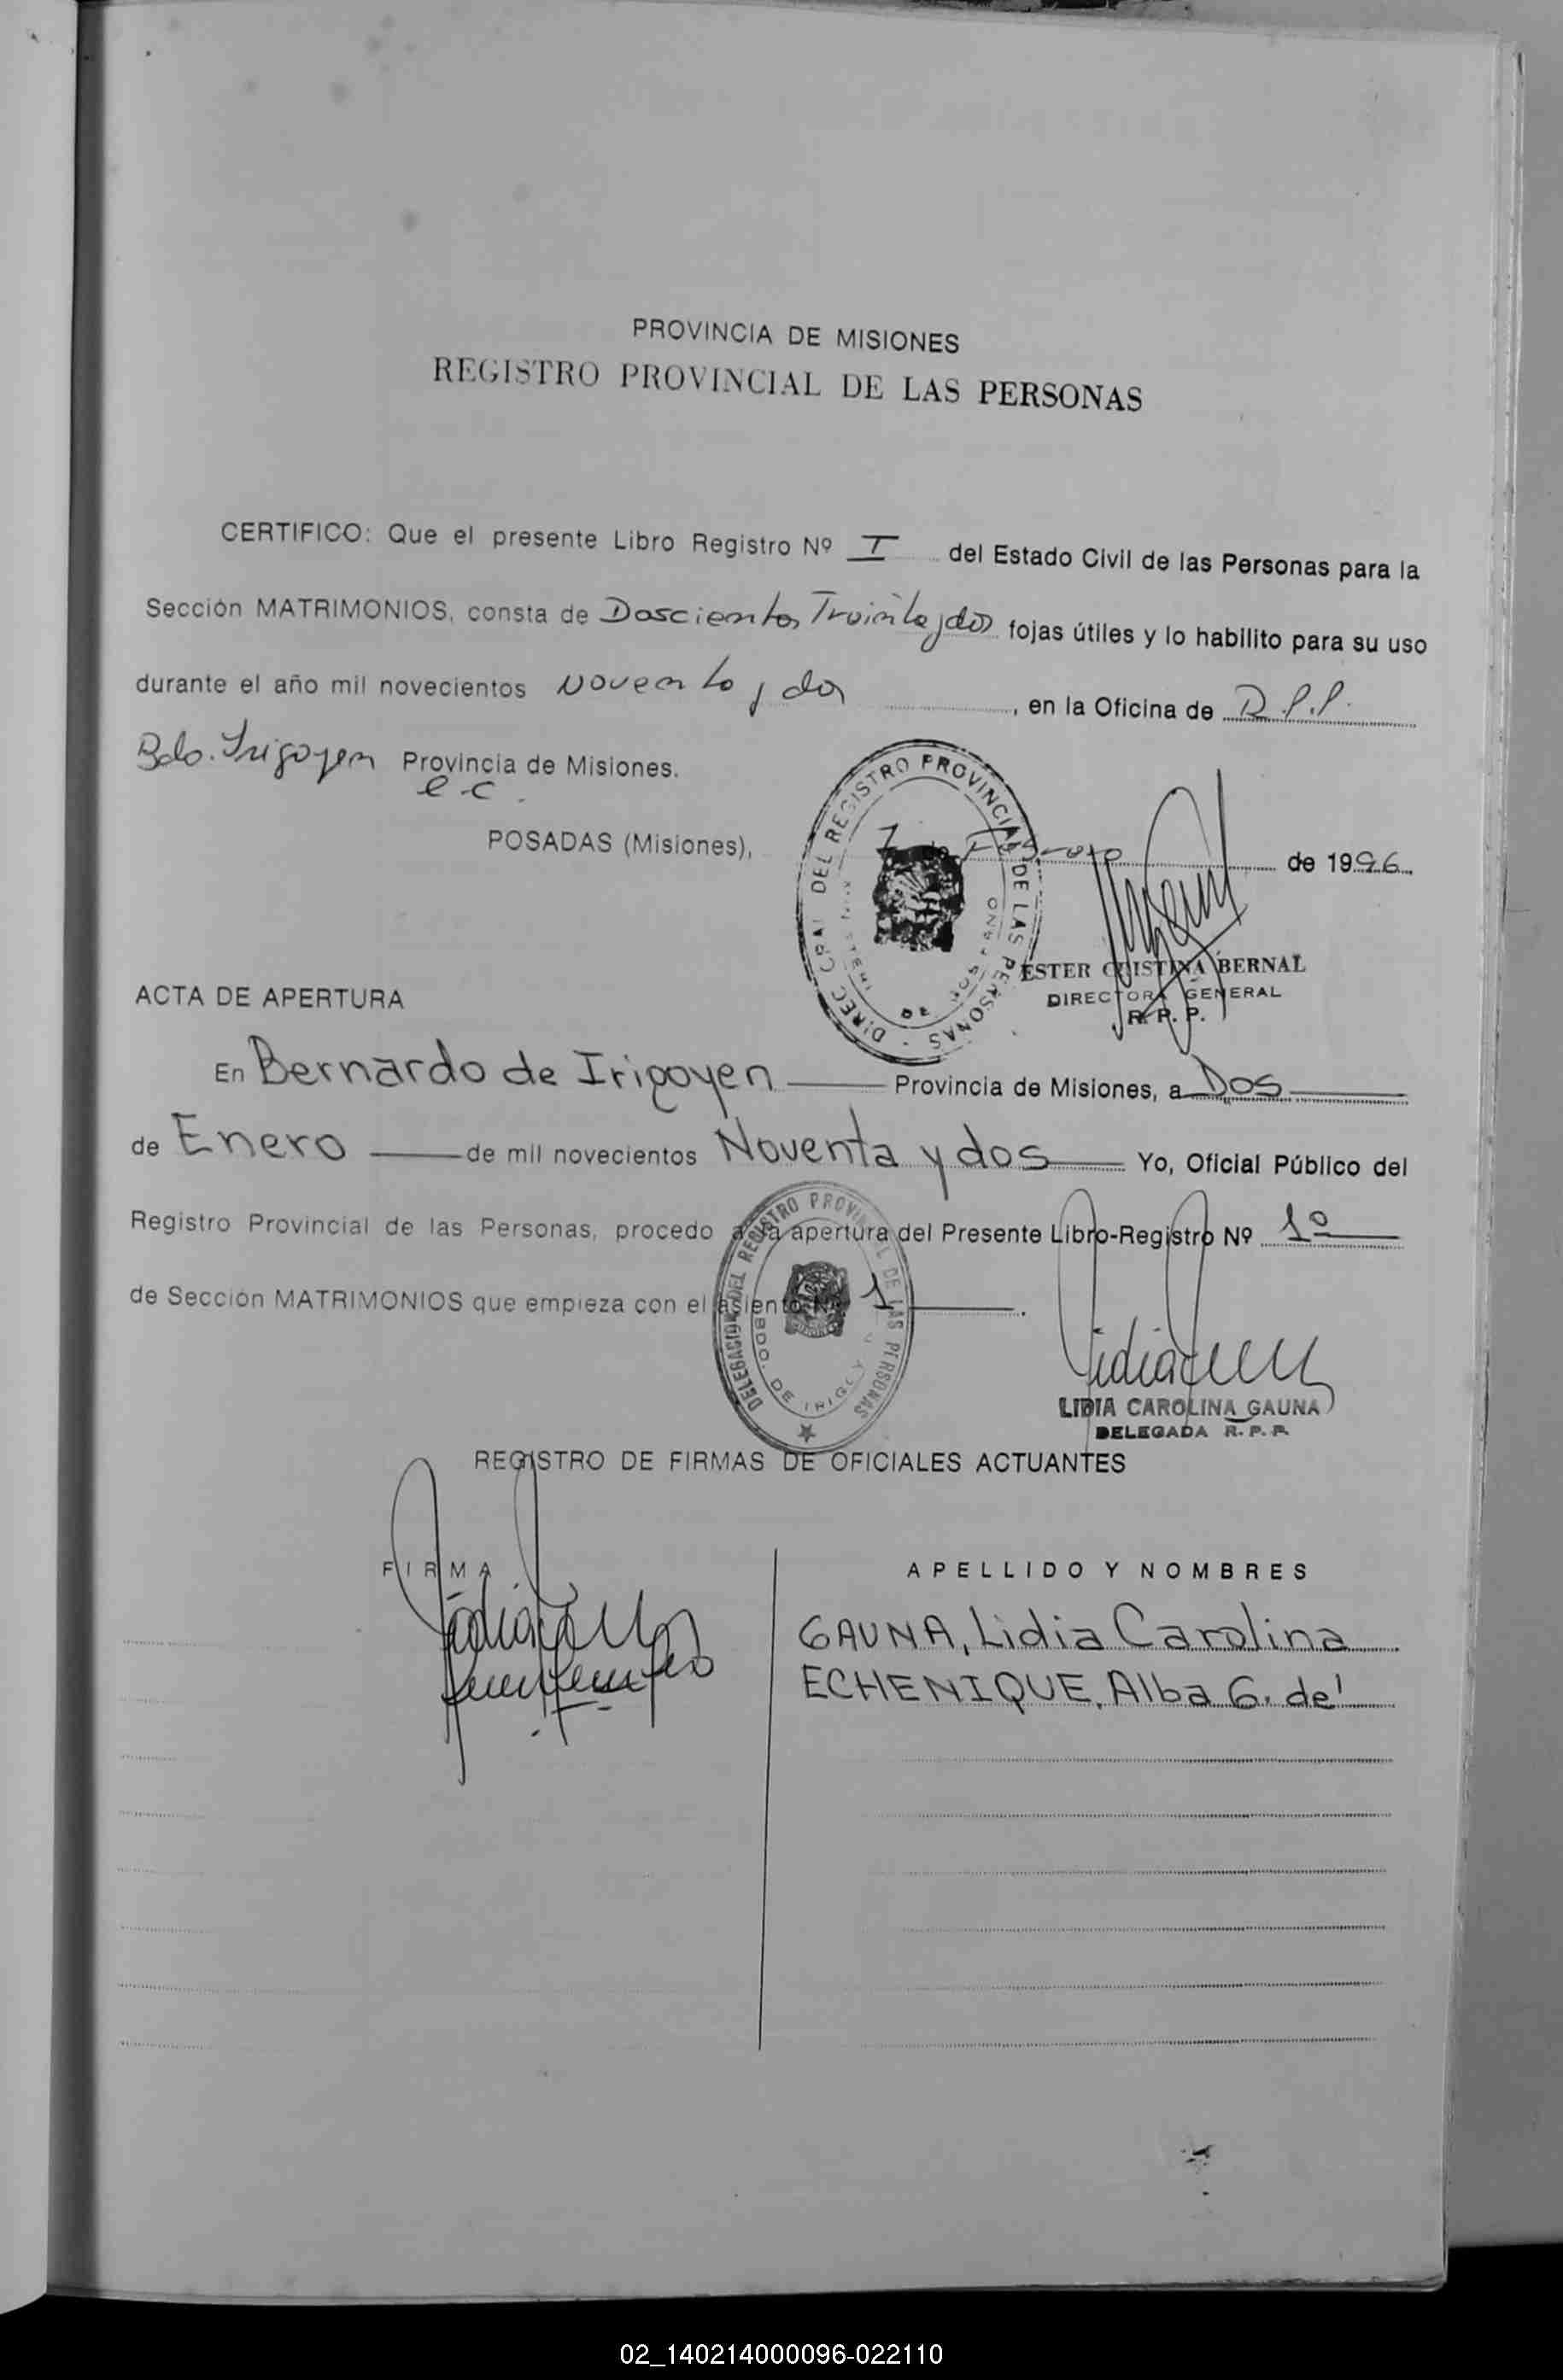 PROVINCIA DE MISIONES
REGISTRO PROVINCIAL DE LAS PERSONAS
CERTIFICO: Que el presente Libro Registro Nº I del Estado Civil de las Personas para la
Sección MATRIMONIOS, consta de Doscientos Treinta y dos fojas útiles y lo habilito para su uso
durante el año mil novecientos noventa y dos, en la Oficina de R.P.P.
Bdo. Irigoyen Provincia de Misiones.
e.c.
POSADAS (Misiones), 7 de Febrero de 1996.
DIREC. GRAL DEL REGISTRO PROVINCIAL DE LAS PERSONAS
ESTER CRISTINA BERNAL
DIRECTORA GENERAL
R. P. P.
ACTA DE APERTURA
En Bernardo de Irigoyen Provincia de Misiones, a Dos
de Enero de mil novecientos Noventa y dos Yo, Oficial Público del
Registro Provincial de las Personas, procedo a la apertura del Presente Libro-Registro Nº 1º
de Sección MATRIMONIOS que empieza con el asiento Nº 1.
DELEGACION DEL REGISTRO PROVINCIAL DE LAS PERSONAS
BDO. DE IRIGOYEN
LIDIA CAROLINA GAUNA
DELEGADA R. P. P.
REGISTRO DE FIRMAS DE OFICIALES ACTUANTES
FIRMA APELLIDO Y NOMBRES
GAUNA, Lidia Carolina
ECHENIQUE, Alba G. de
02_140214000096-022110